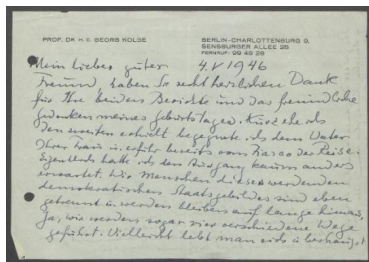 PROF. DR. H. E. GEORG KOLBE
BERLIN-CHARLOTTENBURG 9,
SENSBURGER ALLEE 26
FERNRUF: 99 49 28
4. V 1946
Mein lieber guter
Freund, haben Sie recht herzlichen Dank
für Ihre beiden Berichte und das freundliche
Gedenken meines Geburtstages. Kurz ehe ich
den zweiten erhielt begegnete ich dem Vater
Ihrer Frau u. erfuhr bereits vom der Reise.
Eigentlich hatte ich den Ausgang kaum anders
erwartet. Die Menschen dieses werdenden
demokratischen Staatsgebildes sind eben
getrennt u. werden bleiben auf lange hinaus.
Ja, wir werden sogar vier verschiedene Wege
geführt. Vielleicht lebt man